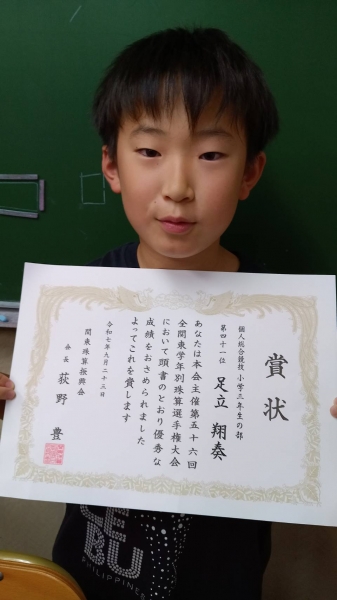 賞状
個人総合競技 小学三年生の部
第四十一位 足立 翔奏
あなたは本会主催第五十六回
全関東学年別珠算選手権大会
において頭書のとおり優秀な
成績をおさめられました
よってこれを賞します
令和七年九月二十三日
関東珠算振興会
会長 荻野 豊
CEBU
PHILIPPINES